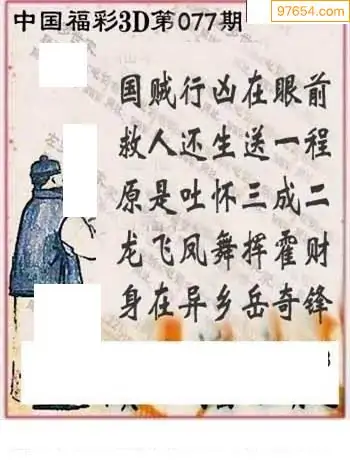 97654.com
中国福彩3D第077期
国贼行凶在眼前
救人还生送一程
原是吐怀三成二
龙飞凤舞挥霍财
身在异乡岳奇锋